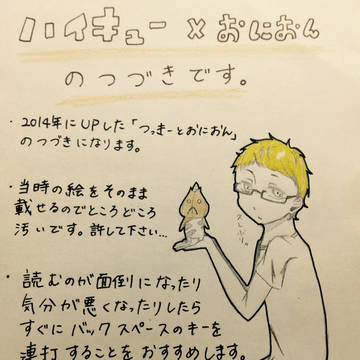 ハイキュー×おにおん
のつづきです。
・2014年にUPした「つっきーとおにおん」
のつづきになります。
・当時の絵をそのまま
載せるのでところどころ
汚いです。許して下さい…
・読むのが面倒になったり
気分が悪くなったりしたら
すぐにバックスペースのキーを
連打することをおすすめします。